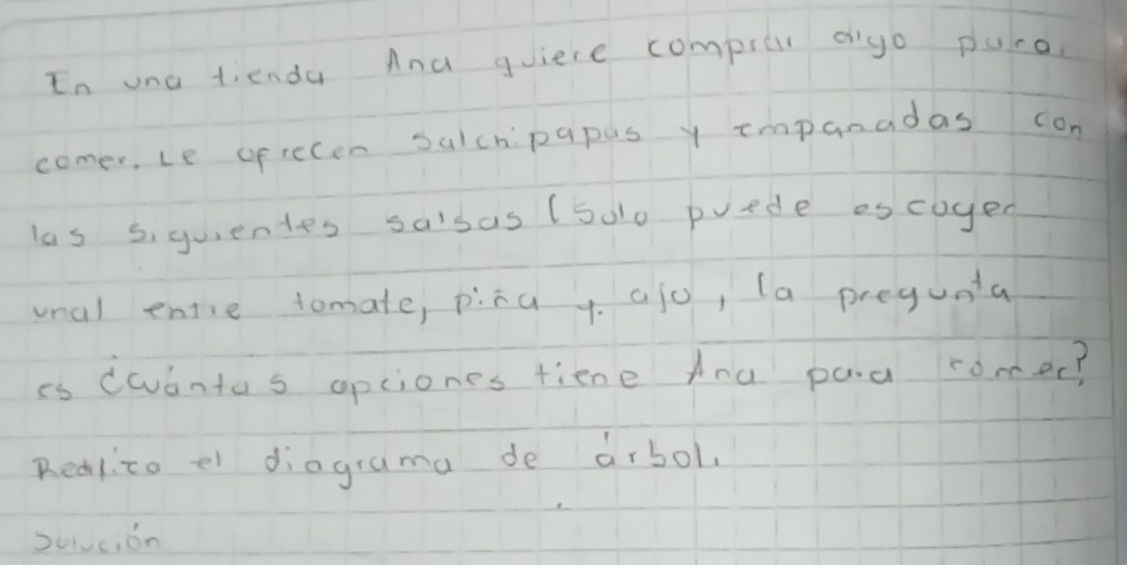 En una tienda Ana quiere comprar algo para
comer. Le ofrecen salchipapas y empanadas con
las siguientes salsas (solo puede escoger
una) entre tomate, piña y ajo, la pregunta
es ¿cuántas opciones tiene Ana para comer?
Realizo el diagrama de árbol.
Solución